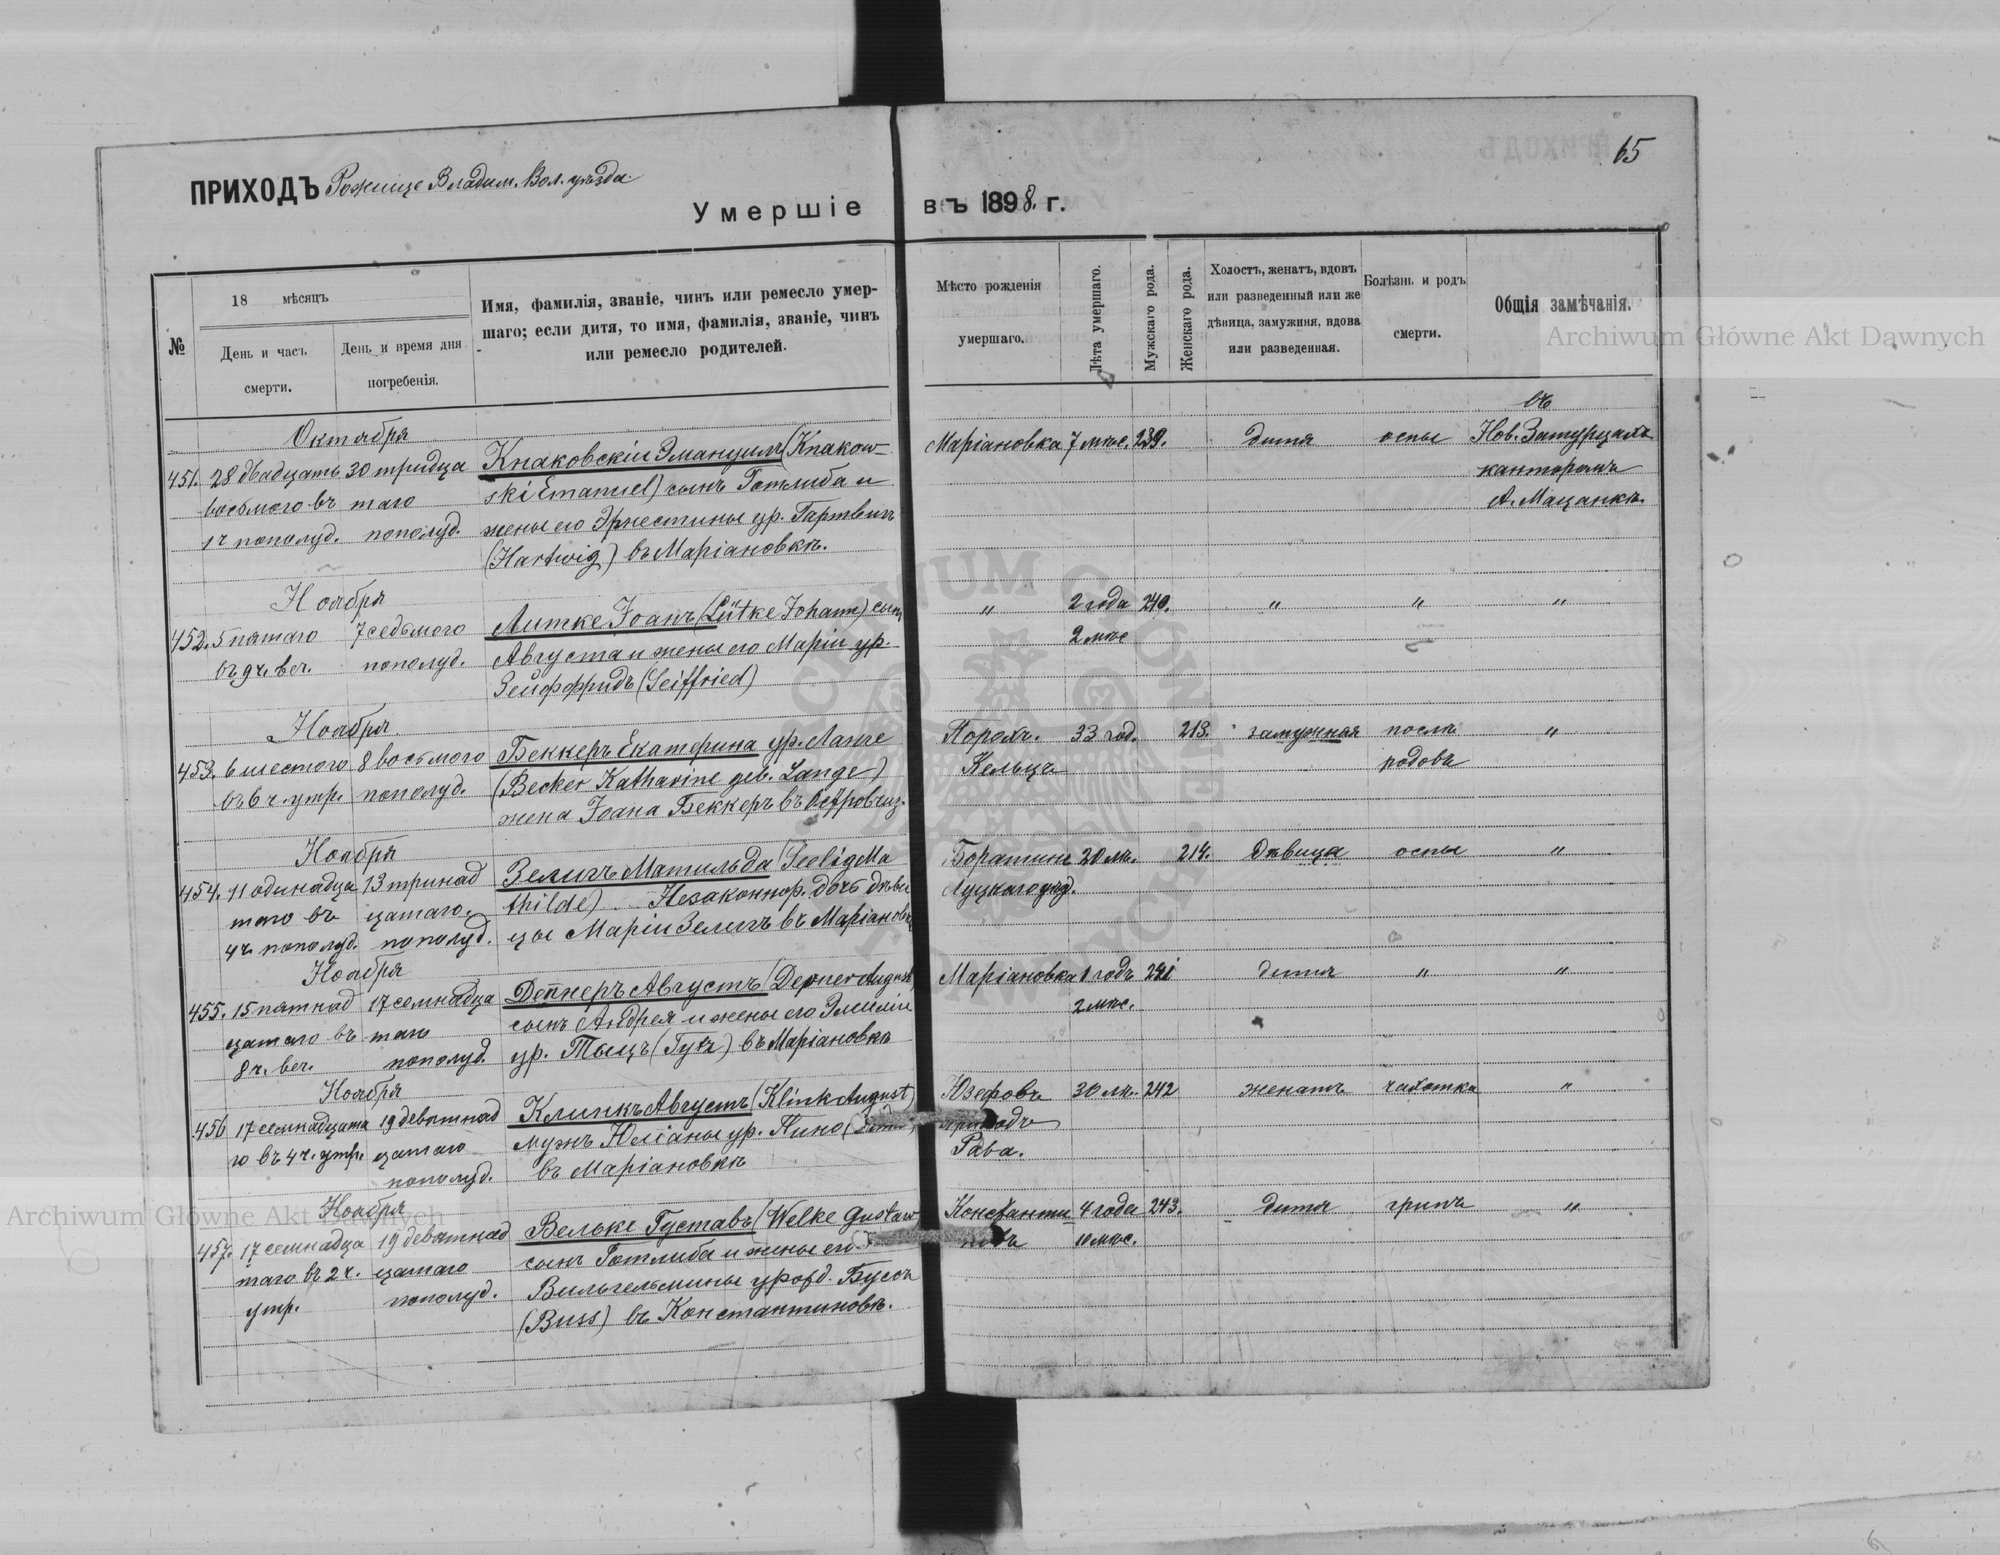 65
ПРИХОДЪ Рожище Владим. Вол. уѣзда.
Умершіе въ 1898. г.
№
18 мѣсяцъ
День и часъ смерти.
День и время дня погребенія.
Имя, фамилія, званіе, чинъ или ремесло умер-
шаго; если дитя, то имя, фамилія, званіе, чинъ
или ремесло родителей.
Мѣсто рожденія
умершаго.
Лѣта умершаго.
Мужскаго рода.
Женскаго рода.
Холостъ, женатъ, вдовъ
или разведенный или же
дѣвица, замужняя, вдова
или разведенная.
Болѣзнь и родъ
смерти.
Общія замѣчанія.
Archiwum Główne Akt Dawnych
Октября въ
451. 28 двадцать 30 тридца Кнаковскій Эмануилъ (Knakow- Маріановка 7 мѣс. 239. дитя оспы Нов. Затурцахъ
восьмого въ таго ski Emanuel) сынъ Готлиба и канторомъ
1ч пополуд. пополуд. жены его Эрнестины ур. Гартвигъ А. Мацанкъ.
(Hartwig) въ Маріановкѣ.
Ноября
452. 5 пятаго 7 седьмого Литке Іоанъ (Lütke Johann) сынъ " 2 года 240. " " "
въ 9 ч. веч. пополуд. Августа и жены его Маріи ур. 2 мѣс
Зейффридъ (Seiffried)
Ноября
453. 6 шестого 8 восьмого Беккеръ Екатерина ур. Ланге Порохъ. 33 год. 213. замужняя послѣ "
въ 6 ч. утр. пополуд. (Becker Katharine geb. Lange) Кельцъ родовъ
жена Іоана Беккеръ въ Островчиз.
Ноября
454. 11 одинадца 13 тринад Зелигъ Матильда (Seelig Ma Боратинъ 20 лѣ. 214. дѣвица оспы "
таго въ цатаго. thilde) Незаконнор. дочь дѣви Луцкаго уѣзд.
4ч. пополуд. пополуд. цы Маріи Зелигъ въ Маріановкѣ
Ноября
455. 15 пятнад 17 семнадца Депнеръ Августъ (Depner August Маріановка 1 годъ 241 дитя " "
цатаго въ таго сынъ Андрея и жены его Эмиліи 2 мѣс.
8 ч. веч. пополуд. ур. Тыцъ (Tytz) въ Маріановкѣ
Ноября
456 17 семнадцата 19 девятнад Клинкъ Августъ (Klink August) Юзефовъ 30 лѣ. 242 женатъ чахотка "
го въ 4 ч. утр. цатаго мужъ Юліаны ур. Пино приходъ
пополуд. въ Маріановкѣ Рава.
Ноября
457. 17 семнадца 19 девятнад Вельке Густавъ (Welke Gustaw Константи 4 года 243. дитя грипъ "
таго въ 2 ч. цатаго сынъ Готлиба и жены его новъ 10 мѣс.
утр. пополуд. Вильгельмины урожд. Буссъ
(Buss) въ Константиновкѣ.
Archiwum Główne Akt Dawnych